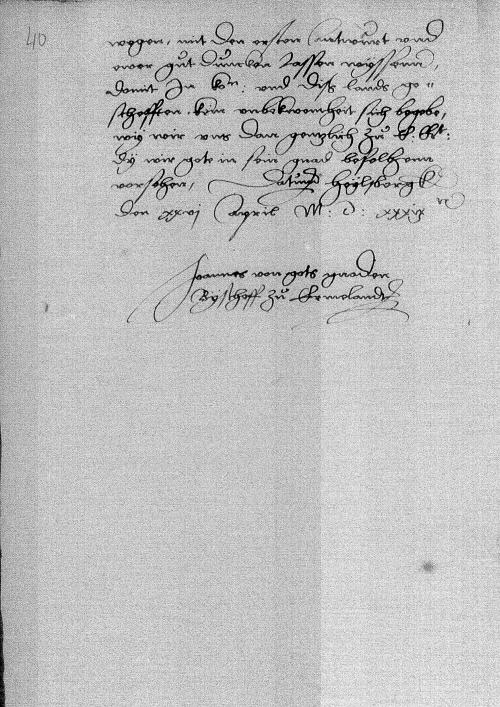 40
wegen, mit den ersten Antwurt und
ewer gut duncken lassen wyssenn,
domit In kon: und diss lands ge=
schefften kein unbekwemheit sich begebe,
wy wir uns dan genzlich zu E.
dy wir gote in sein gnad befolhenn
vorsehen, Datum Heylsbergk
den xxvj April M: D: xxxix
Joannes von gots gnaden
Byschoff zu Ermelandt